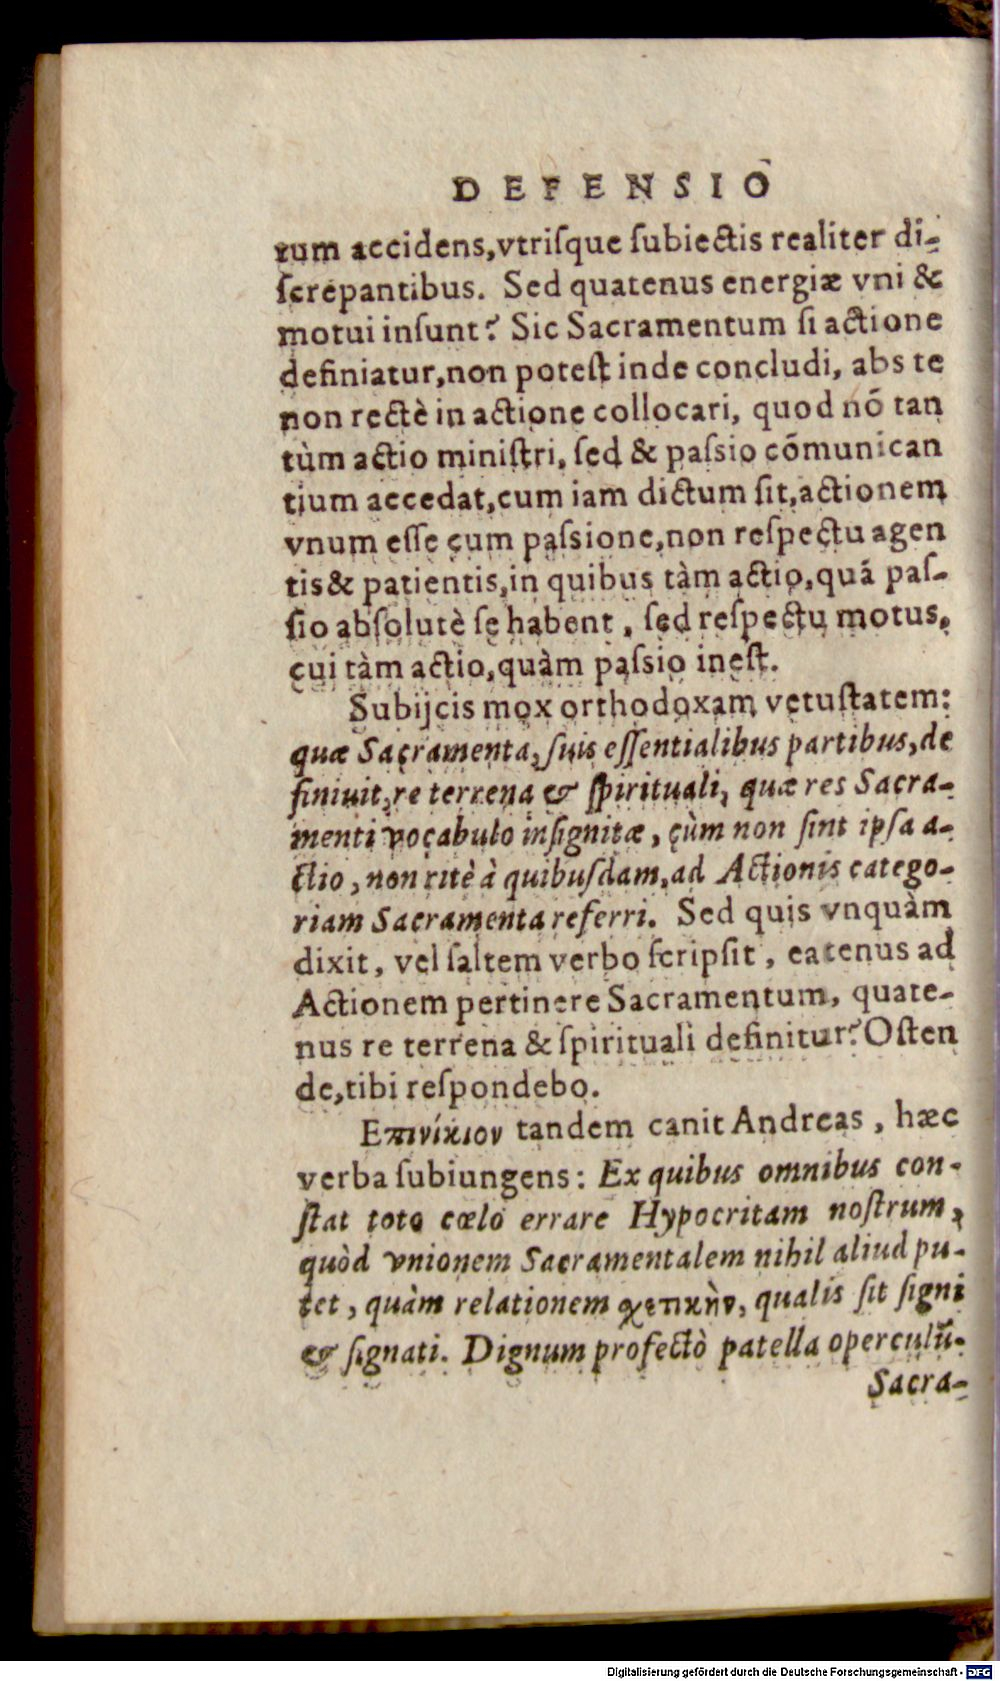 DEFENSIO
tum accidens,vtriſque ſubiectis realiter di-
ſcrepantibus. Sed quatenus energiæ vni &
motui inſunt? Sic Sacramentum ſi actione
definiatur,non poteſt inde concludi, abs te
non rectè in actione collocari, quod nõ tan
tùm actio miniſtri, ſed & paſsio cõmunican
tium accedat,cum iam dictum ſit,actionem
vnum eſſe cum paſsione,non reſpectu agen
tis& patientis,in quibus tàm actio,quã paſ-
ſio abſolutè ſe habent, ſed reſpectu motus,
cui tàm actio,quàm paſsio ineſt.
Subijcis mox orthodoxam vetuſtatem:
quæ Sacramenta, ſuis eſſentialibus partibus,de
finiuit,re terrena & ſpirituali, quæ res Sacra-
menti vocabulo inſignitæ, cùm non ſint ipſa a-
ctio, non ritè à quibuſdam,ad Actionis catego-
riam Sacramenta referri. Sed quis vnquàm
dixit, vel ſaltem verbo ſcripſit, eatenus ad
Actionem pertinere Sacramentum, quate-
nus re terrena & ſpirituali definitur? Oſten
de,tibi reſpondebo.
Επινίκιον tandem canit Andreas, hæc
verba ſubiungens: Ex quibus omnibus con-
ſtat toto cœlo errare Hypocritam noſtrum,
quòd vnionem Sacramentalem nihil aliud pu-
tet, quàm relationem χετικὴν, qualis ſit ſigni
& ſignati. Dignum profectò patella operculũ.
Sacra-
Digitalisierung gefördert durch die Deutsche Forschungsgemeinschaft - DFG